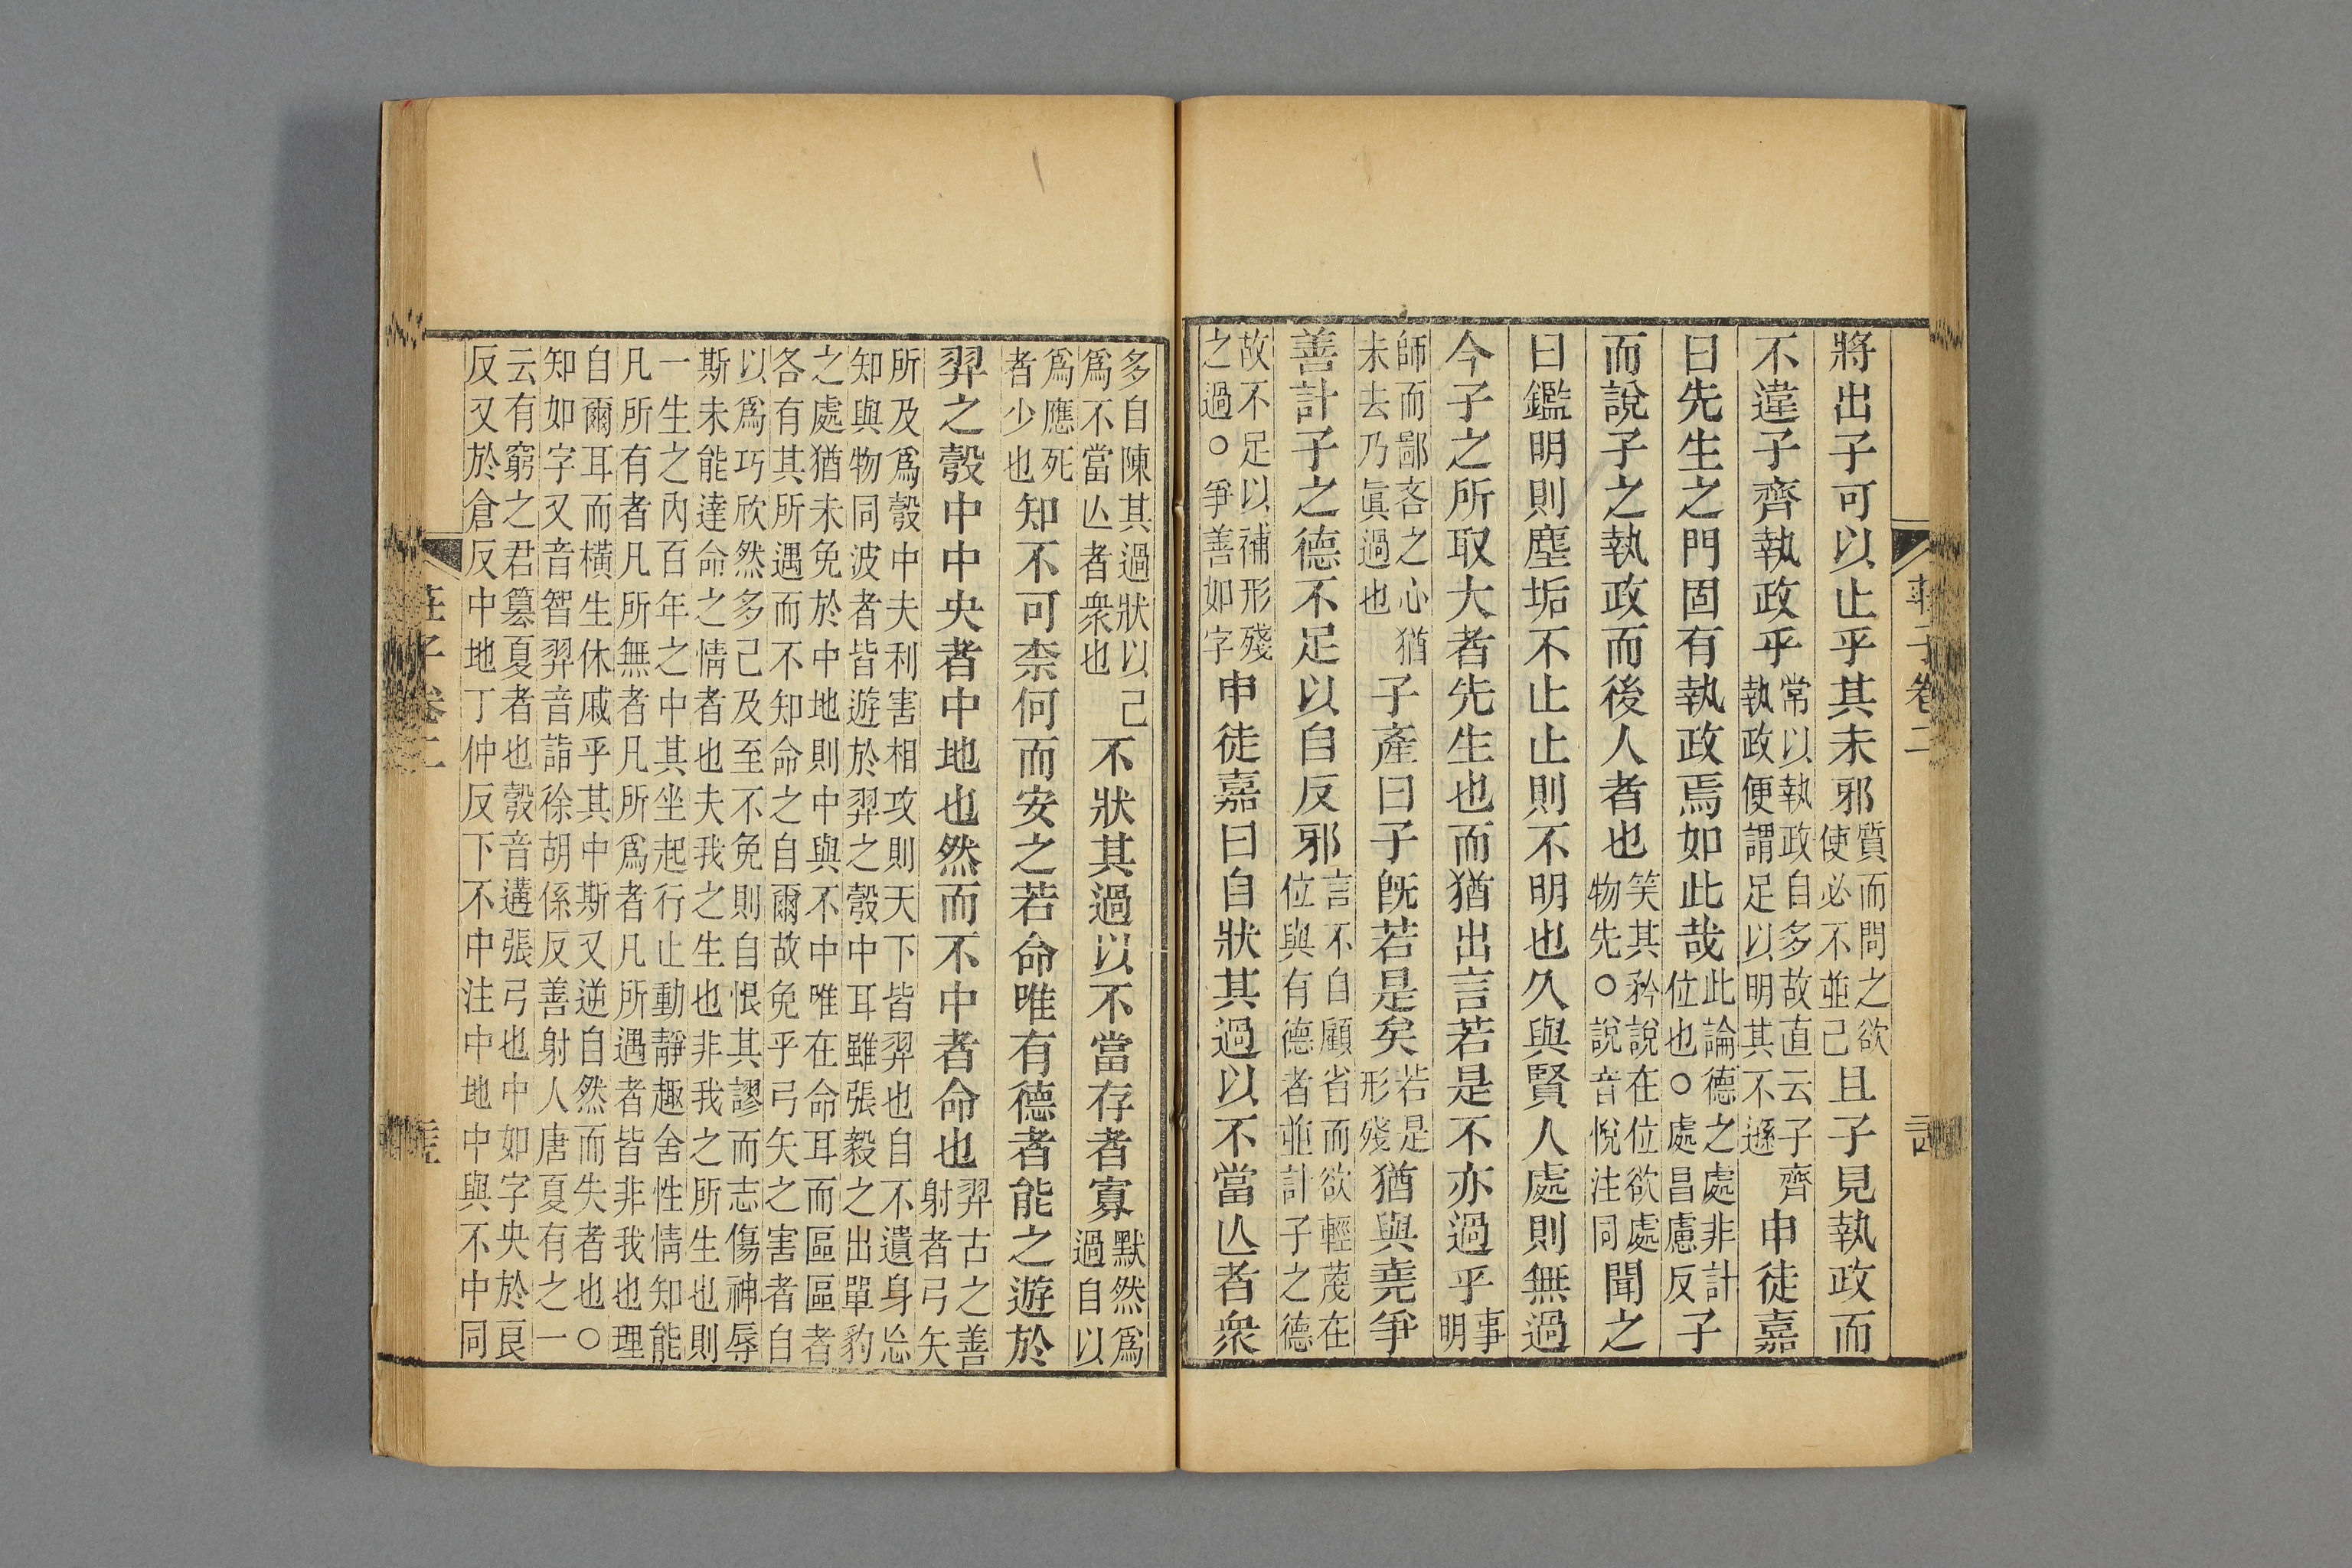 將出子可以止乎其未邪質而問之欲使必不並己且子見執政而
不違子齊執政乎常以執政自多故直云子齊執政便謂足以明其不遜申徒嘉
曰先生之門固有執政焉如此哉此論德之處非計位也○處昌慮反子
而說子之執政而後人者也笑其矜說在位欲處物先○說音悅注同聞之
曰鑑明則塵垢不止止則不明也久與賢人處則無過
今子之所取大者先生也而猶出言若是不亦過乎事明
師而鄙吝之心猶未去乃眞過也子產曰子旣若是矣若是形殘猶與堯爭
善計子之德不足以自反邪言不自顧省而欲輕蔑在位與有德者並計子之德
故不足以補形殘之過○爭善如字申徒嘉曰自狀其過以不當亾者衆
多自陳其過狀以己爲不當亾者衆也不狀其過以不當存者寡默然爲過自以
爲應死者少也知不可柰何而安之若命唯有德者能之遊於
羿之彀中中央者中地也然而不中者命也羿古之善射者弓矢
所及爲彀中夫利害相攻則天下皆羿也自不遺身忘
知與物同波者皆遊於羿之彀中耳雖張毅之出單豹
之處猶未免於中地則中與不中唯在命耳而區區者
各有其所遇而不知命之自爾故免乎弓矢之害者自
以爲巧欣然多己及至不免則自恨其謬而志傷神辱
斯未能達命之情者也夫我之生也非我之所生也則
一生之內百年之中其坐起行止動靜趣舍性情知能
凡所有者凡所無者凡所爲者凡所遇者皆非我也理
自爾耳而橫生休戚乎其中斯又逆自然而失者也○
知如字又音智羿音詣徐胡係反善射人唐夏有之一
云有窮之君篡夏者也彀音遘張弓也中如字央於良
反又於倉反中地丁仲反下不中注中地中與不中同
莊子卷二